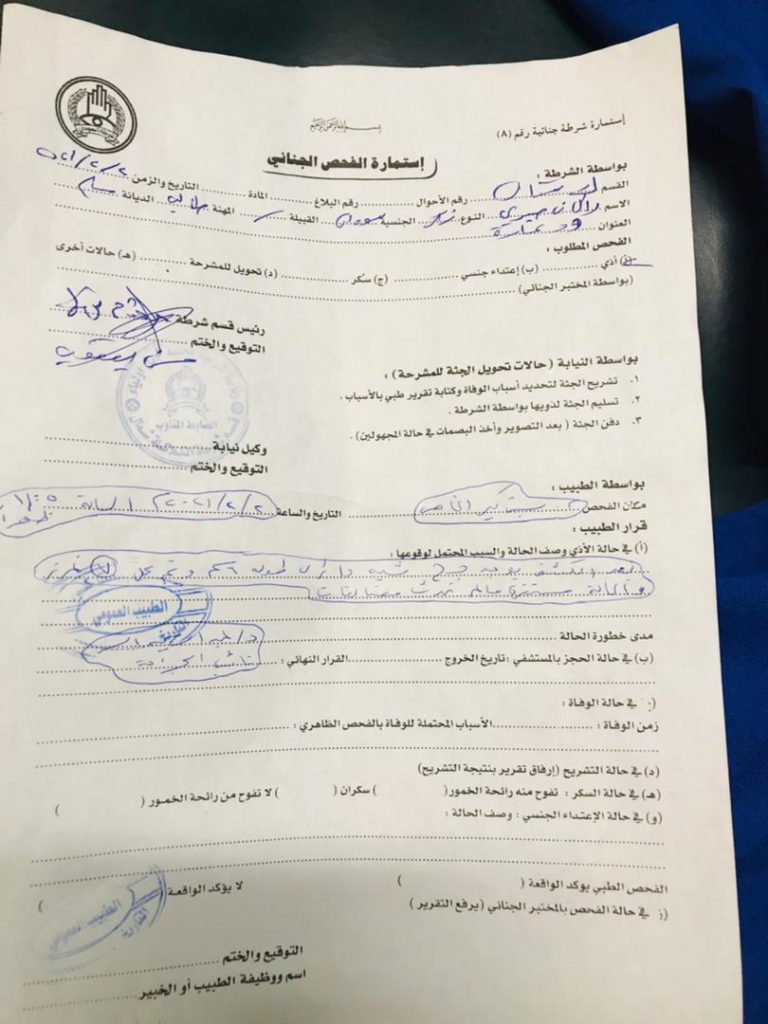 بسم الله الرحمن الرحيم
إستمارة شرطة جنائية رقم (٨)
إستمارة الفحص الجنائي
بواسطة الشرطة :
القسم رقم الأحوال رقم البلاغ المادة التاريخ والزمن
الاسم النوع ذكر الجنسية سوداني القبيلة المهنة طالب الديانة مسلم
العنوان
الفحص المطلوب :
(أ) أذي (ب) إعتداء جنسي (ج) سكر (د) تحويل للمشرحة (هـ) حالات أخرى
(بواسطة المختبر الجنائي)
رئيس قسم شرطة
التوقيع والختم
الضابط المناوب
بواسطة النيابة (حالات تحويل الجثة للمشرحة) :
١. تشريح الجثة لتحديد أسباب الوفاة وكتابة تقرير طبي بالأسباب.
٢. تسليم الجثة لذويها بواسطة الشرطة.
٣. دفن الجثة ( بعد التصوير وأخذ البصمات في حالة المجهولين).
وكيل نيابة
التوقيع والختم
بواسطة الطبيب :
مكان الفحص التاريخ والساعة ٢٠٢١/٢/٢م الساعة
قرار الطبيب :
(أ) في حالة الأذي وصف الحالة والسبب المحتمل لوقوعها :
بعد الكشف يوجد جرح شبه دائري طوله وتم عمل غرز
والحالة مستقرة مالم تحدث مضاعفات
الطبيب العمومي
مدى خطورة الحالة
(ب) في حالة الحجز بالمستشفي : تاريخ الخروج القرار النهائي :
نائب الجراحة
في حالة الوفاة :
زمن الوفاة : الأسباب المحتملة للوفاة بالفحص الظاهري :
(د) في حالة التشريح (إرفاق تقرير بنتيجة التشريح)
(هـ) في حالة السكر : تفوح منه رائحة الخمور( ) سكران ( ) لا تفوح من رائحة الخمور ( )
(و) في حالة الإعتداء الجنسي : وصف الحالة :
الفحص الطبي يوكد الواقعة ( ) لا يؤكد الواقعة ( )
(ز في حالة الفحص بالمختبر الجنائي (يرفع التقرير )
الطبيب العمومي
التوقيع والختم
اسم ووظيفة الطبيب أو الخبير